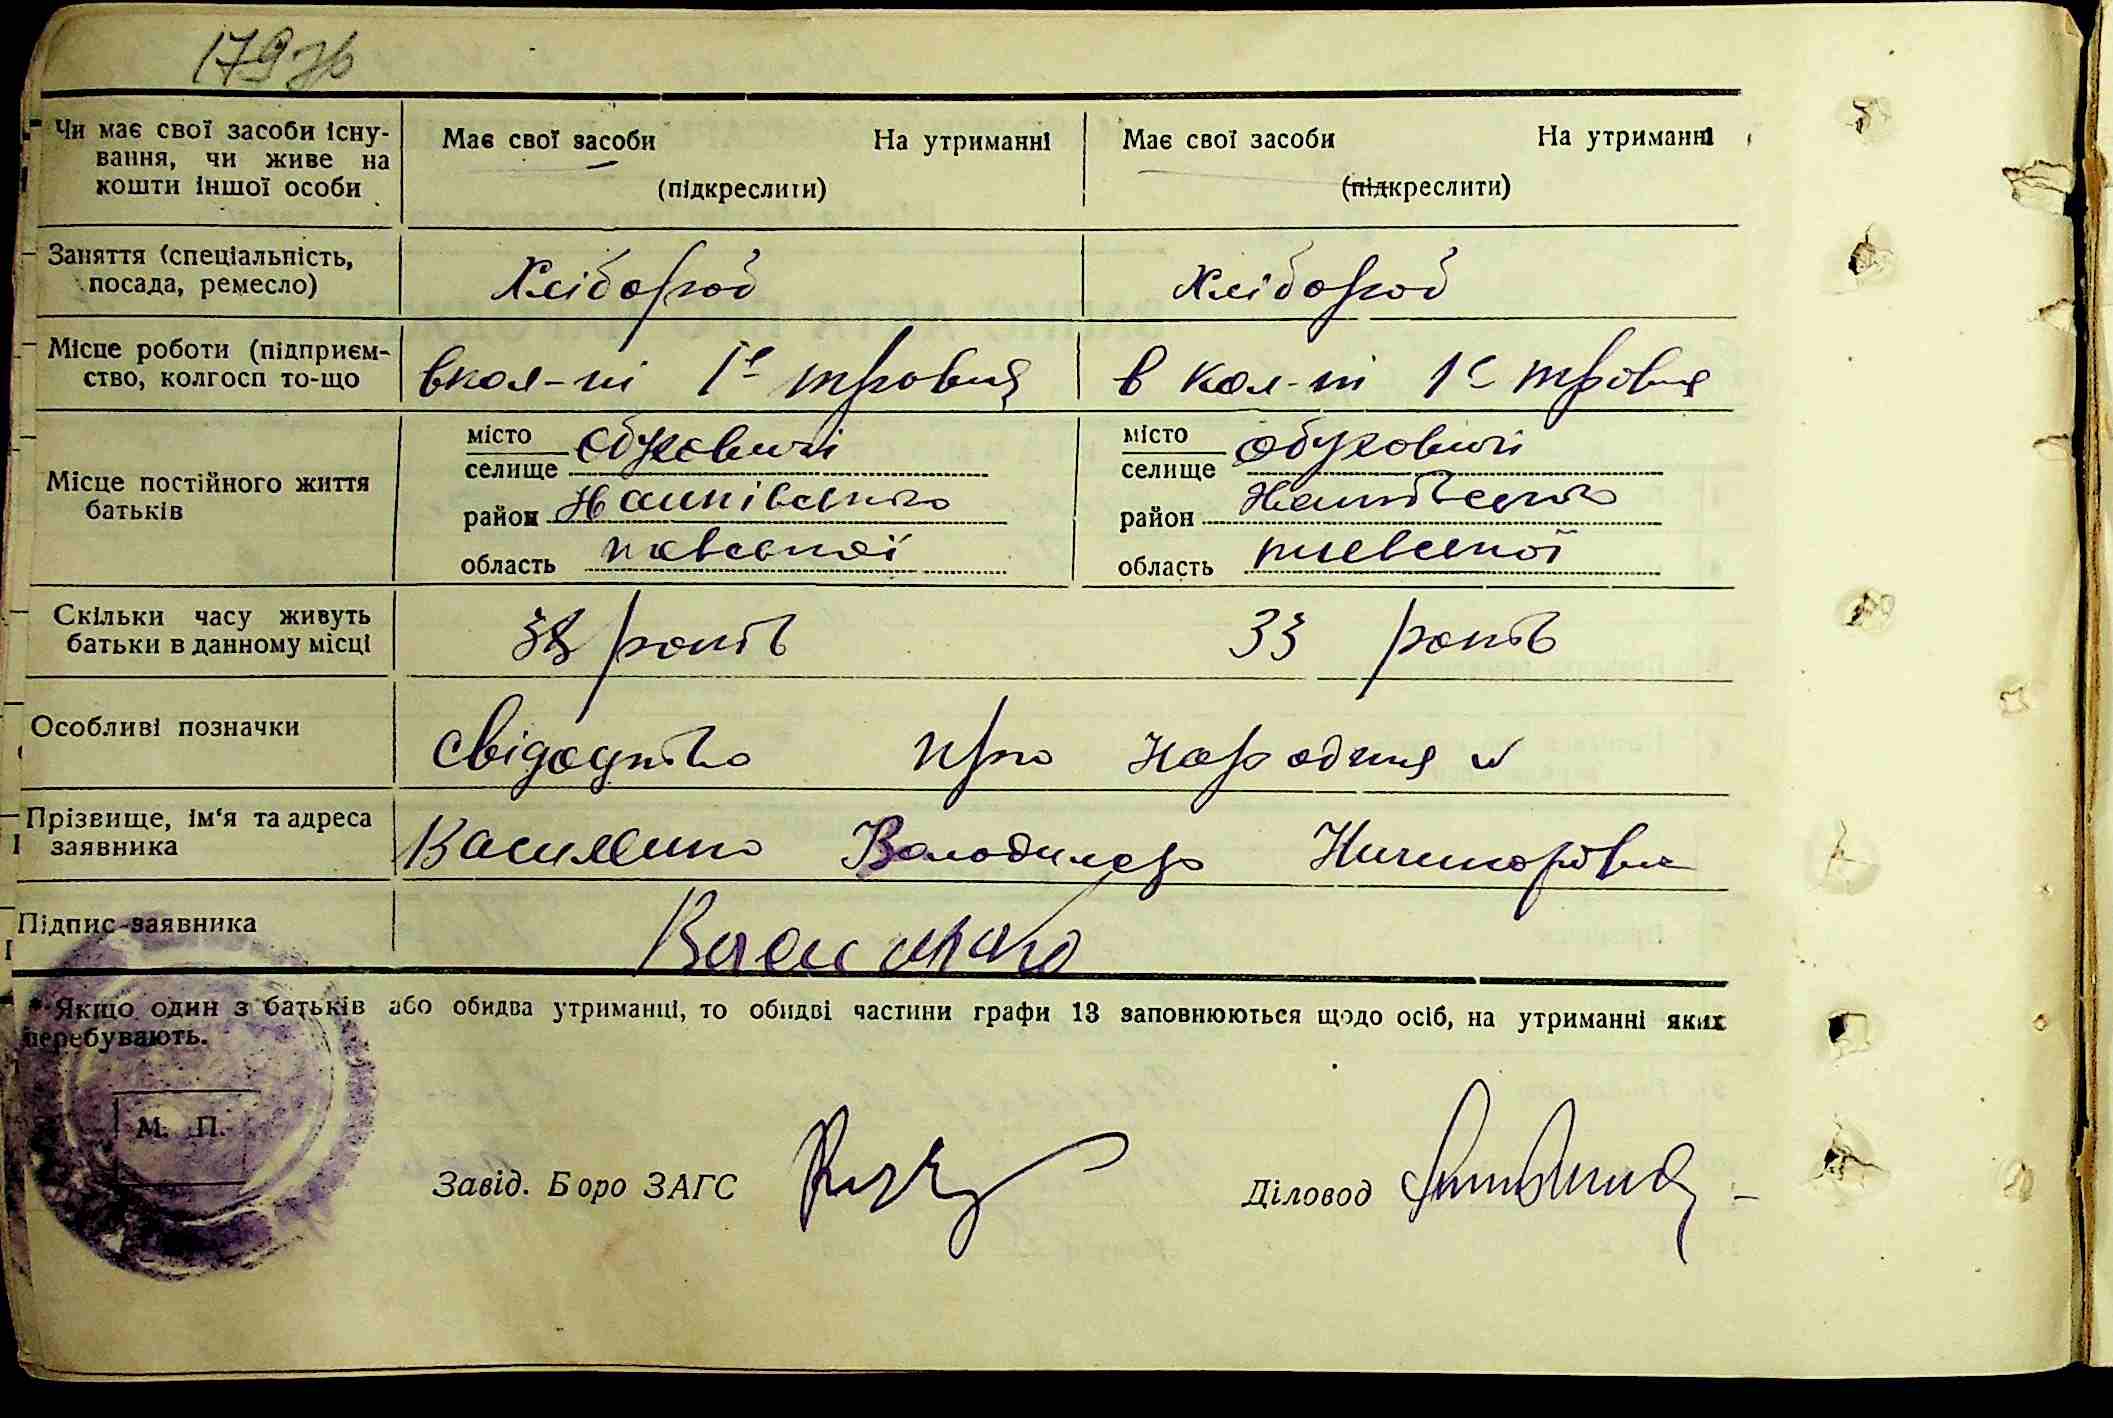 179зв
Чи має свої засоби існу-
вання, чи живе на
кошти іншої особи
Має свої засоби На утриманні
(підкреслити)
Має свої засоби На утриманні
(підкреслити)
Заняття (спеціальність,
посада, ремесло)
Хлібороб
Хлібороб
Місце роботи (підприєм-
ство, колгосп то-що
в кол-пі 1е травня
в кол-пі 1е травня
Місце постійного життя
батьків
місто
селище Обуховичі
район
область київської
місто
селище Обуховичі
район
область київської
Скільки часу живуть
батьки в данному місці
років
33 років
Особливі позначки
свідоцтво про народження №
Прізвище, ім‘я та адреса
заявника
Василенко Володимер Ничипорович
Підпис заявника
Василенко
* Якщо один з батьків або обидва утриманці, то обидві частини графи 13 заповнюються щодо осіб, на утриманні яких
перебувають.
М. П.
Завід. Боро ЗАГС
Діловод